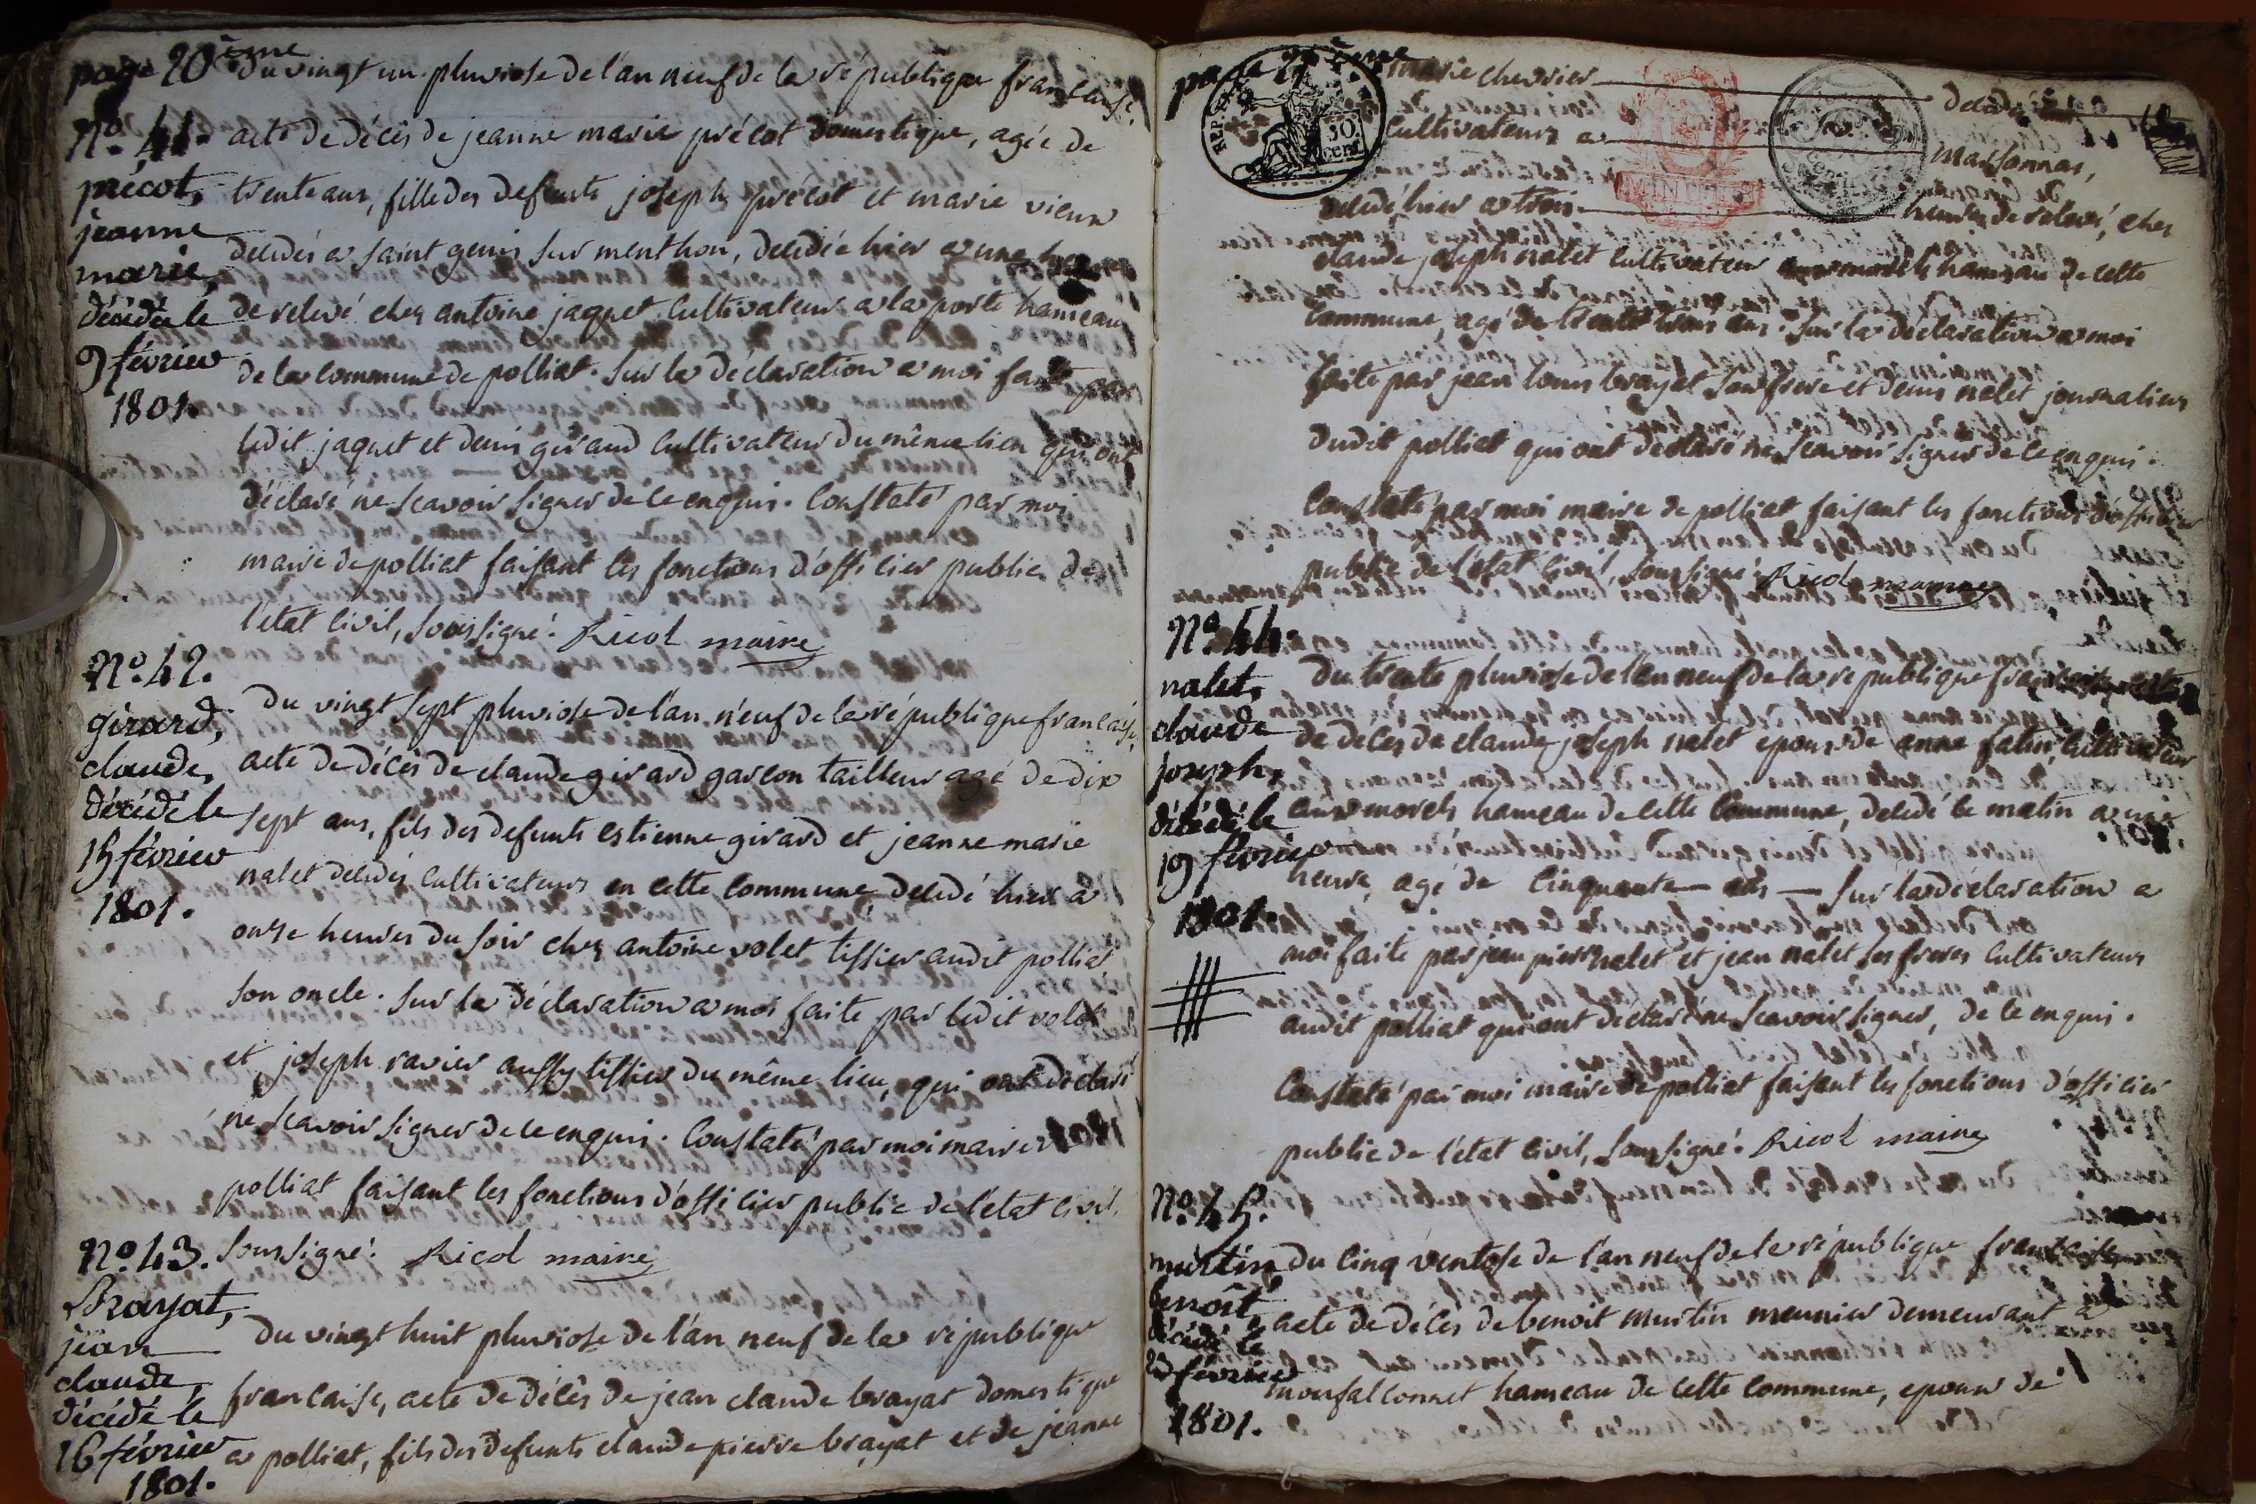 page 20ème
du vingt un pluviose de l'an neuf de la république française,
No. 41. acte de décès de jeanne marie précot domestique, agée de
précot, trente ans, fille des defunts joseph précot et marie vieux
jeanne
marie, decedés a saint genis sur menthon, decedée hier a une heure
décédée le de relevé chez antoine jaquet cultivateur a la poste hameau
9 février de la commune de polliat. sur la déclaration a moi faite par
1801. ledit jaquet et denis giraud cultivateur du même lieu qui ont
déclaré ne scavoir signer de ce enquis. Constaté par moi
maire de polliat faisant les fonctions d'officier public de
l'état civil, soussigné. Ricol maire
No. 42.
girard, du vingt sept pluviose de l'an neuf de la république française,
claude, acte de décès de claude girard garcon tailleur agé de dix
décédé le sept ans, fils des defunts estienne girard et jeanne marie
15 février nalet decedés cultivateurs en cette commune decedé hier a
1801. onze heures du soir chez antoine volet tissier audit polliat
son oncle. sur la déclaration a moi faite par ledit volet
et joseph ravier aussy tissier du même lieu, qui ont déclaré
ne scavoir signer de ce enquis. Constaté par moi maire de
polliat faisant les fonctions d'officier public de l'état civil,
No. 43. soussigné. Ricol maire
Brayat,
jean du vingt huit pluviose de l'an neuf de la république
claude, française, acte de décès de jean claude brayat domestique
décédé le
16 février a polliat, fils des defunts claude pierre brayat et de jeanne
1801.
page
marie chevrier decedés
REP. 50 cent.
cultivateurs a marsonnas,
decedé hier a trois heures de relevé, chez
claude joseph nalet cultivateur aux morels hameau de cette
commune, agé de trente trois ans. sur la déclaration a moi
faite par jean louis brayat son frere et denis nalet journaliers
dudit polliat qui ont declaré ne scavoir signer de ce enquis.
Constaté par moi maire de polliat faisant les fonctions d'officier
public de l'état civil, soussigné. Ricol maire
No. 44.
nalet, du trente pluviose de l'an neuf de la republique française
claude de décès de claude joseph nalet epoux de anne cultivateur
joseph,
décédé le aux morels hameau de cette commune, decedé ce matin a une
19 février heure, agé de cinquante ans sur la déclaration a
1801. moi faite par jean pierre nalet et jean nalet ses freres cultivateurs
audit polliat qui ont declaré ne scavoir signer, de ce enquis.
Constaté par moi maire de polliat faisant les fonctions d'officier
public de l'état civil, soussigné. Ricol maire
No. 45.
du cinq ventose de l'an neuf de la république française
benoît, acte de décès de benoit meunier demeurant a
décédé le
février monfalconnet hameau de cette commune, epoux de
1801.